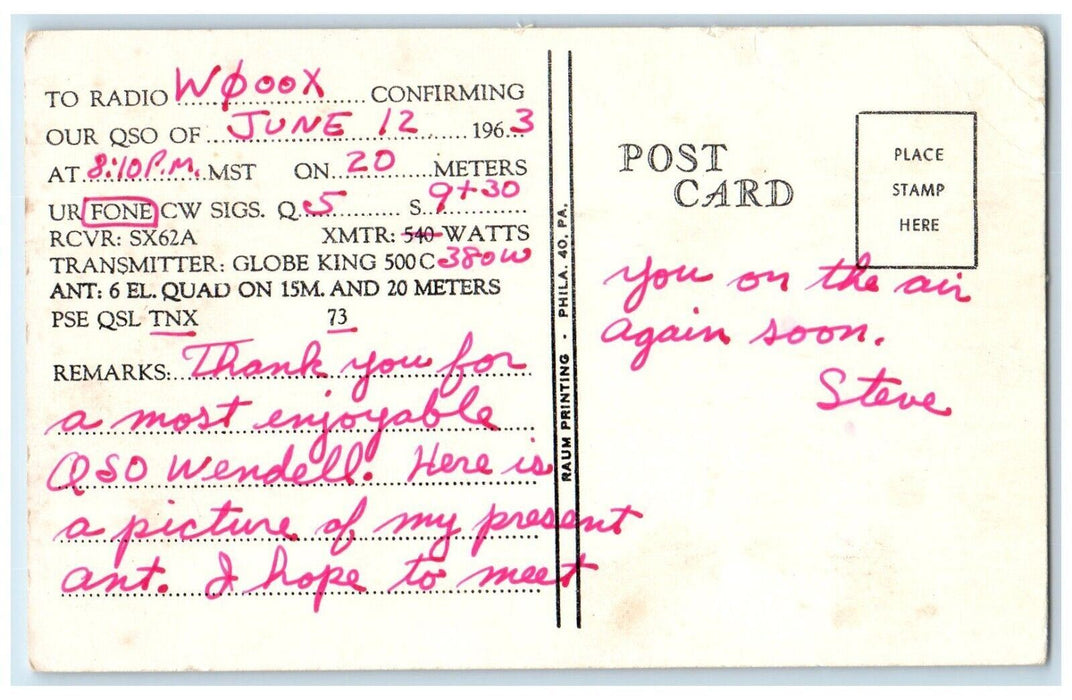 TO RADIO WØOOX CONFIRMING
OUR QSO OF JUNE 12 1963
AT 8:10 P.M. MST ON 20 METERS
UR FONE CW SIGS. Q 5 S 9+30
RCVR: SX62A XMTR: 540 WATTS
TRANSMITTER: GLOBE KING 500C 380W
ANT: 6 EL. QUAD ON 15M. AND 20 METERS
PSE QSL TNX 73
REMARKS: Thank you for
a most enjoyable
QSO Wendell. Here is
a picture of my present
ant. I hope to meet
RAUM PRINTING - PHILA. 40, PA.
POST
CARD
PLACE
STAMP
HERE
you on the air
again soon.
Steve